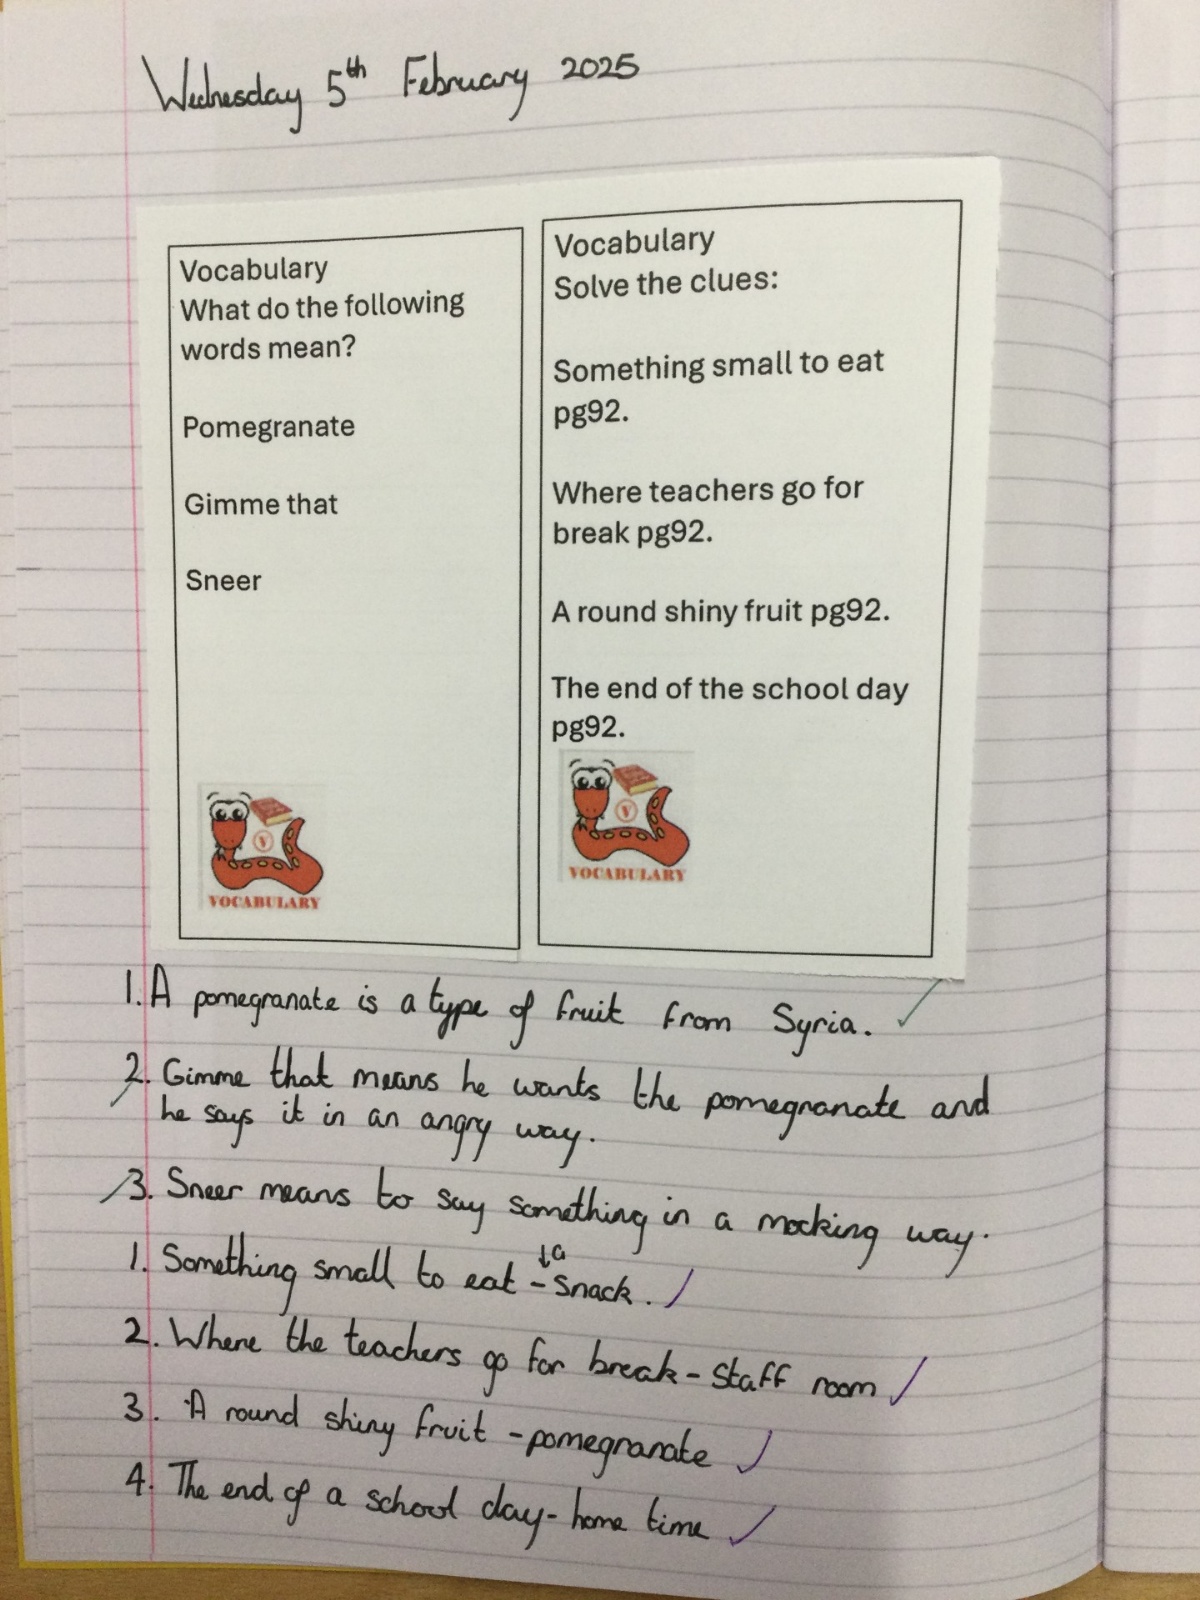 Wednesday 5th February 2025
Vocabulary
What do the following
words mean?
Pomegranate
Gimme that
Sneer
V
VOCABULARY
Vocabulary
Solve the clues:
Something small to eat
pg92.
Where teachers go for
break pg92.
A round shiny fruit pg92.
The end of the school day
pg92.
V
VOCABULARY
1. A pomegranate is a type of fruit from Syria.
2. Gimme that means he wants the pomegranate and
he says it in an angry way.
3. Sneer means to say something in a mocking way.
1. Something small to eat - ↓a snack.
2. Where the teachers go for break - staff room
3. A round shiny fruit - pomegranate
4. The end of a school day - home time